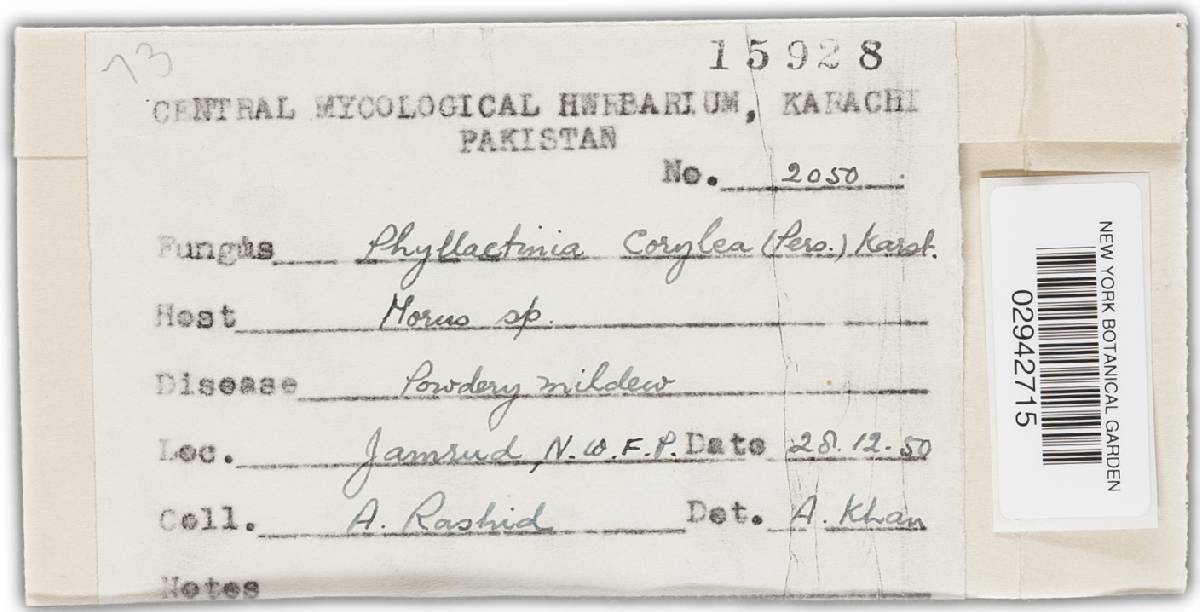 73
15928
CENTRAL MYCOLOGICAL HERBARIUM, KARACHI
PAKISTAN
No. 2050
Fungus Phyllactinia Corylea (Pers.) Karst.
Host Morus sp.
Disease Powdery mildew
Loc. Jamrud, N.W.F.P. Date 28.12.50
Coll. A. Rashid Det. A. Khan
Notes
NEW YORK BOTANICAL GARDEN
02942715